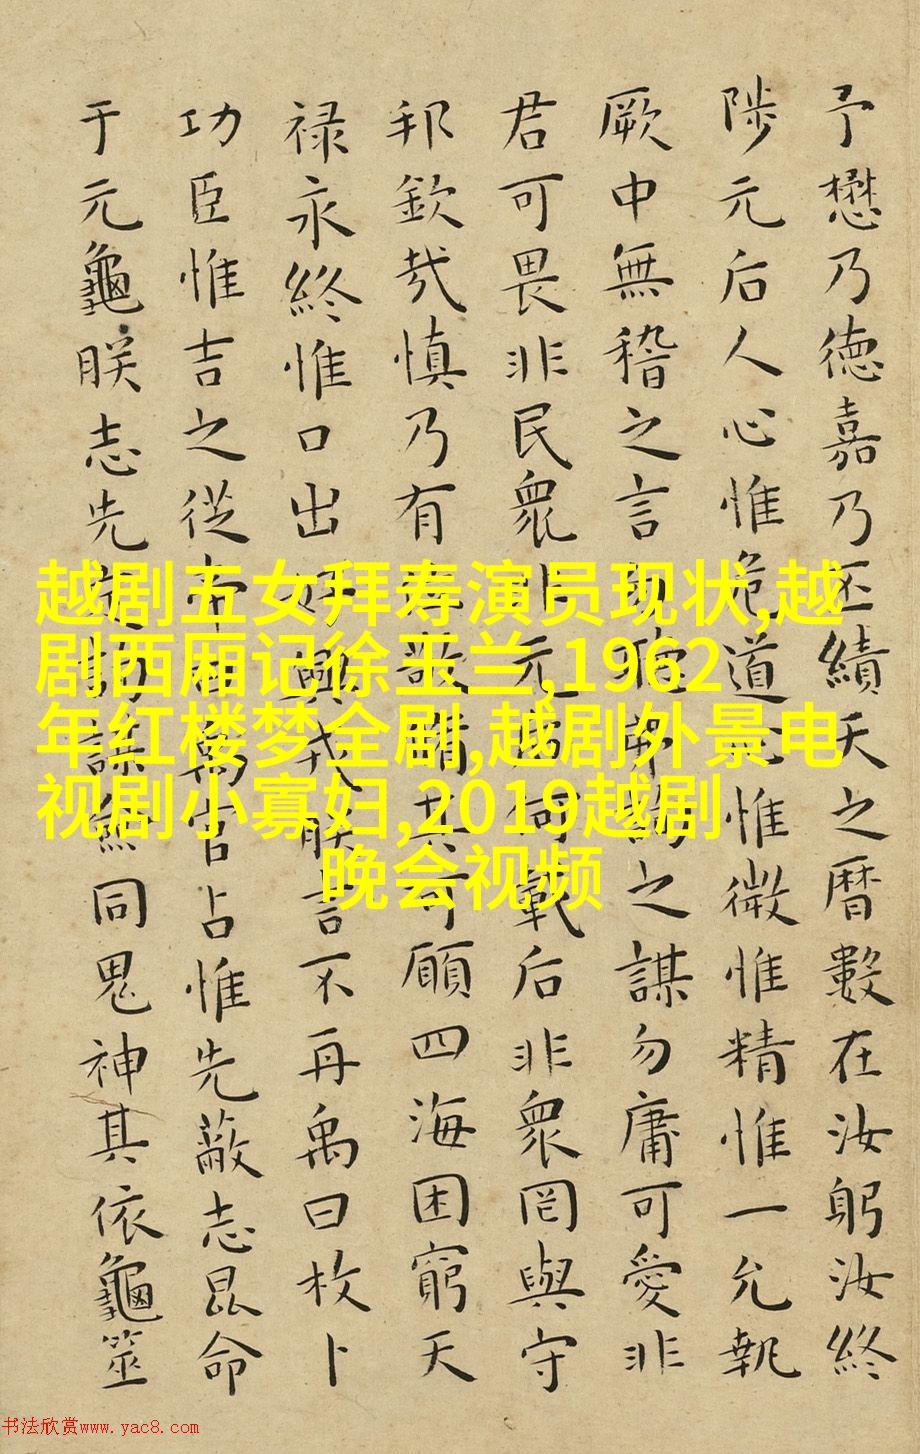 予懋乃德嘉乃丕績天之曆數在汝躬汝終
陟元后人心惟危道惟微惟精惟一允執
厥中無稽之言弗詢之謀勿庸可愛非
君可畏非民衆非元后何戴后非衆罔與守
邦欽哉慎乃有敬脩其可願四海困窮天
祿永終惟口出好興戎朕言不再禹曰枚卜
功臣惟吉之從帝曰禹官占惟先蔽志昆命
于元龜朕志先詢謀僉同鬼神其依龜筮
越剧五女拜寿演员现状,越
剧西厢记徐玉兰,1962
年红楼梦全剧,越剧外景电
视剧小寡妇,2019越剧
晚会视频
书法欣赏www.yac8.com